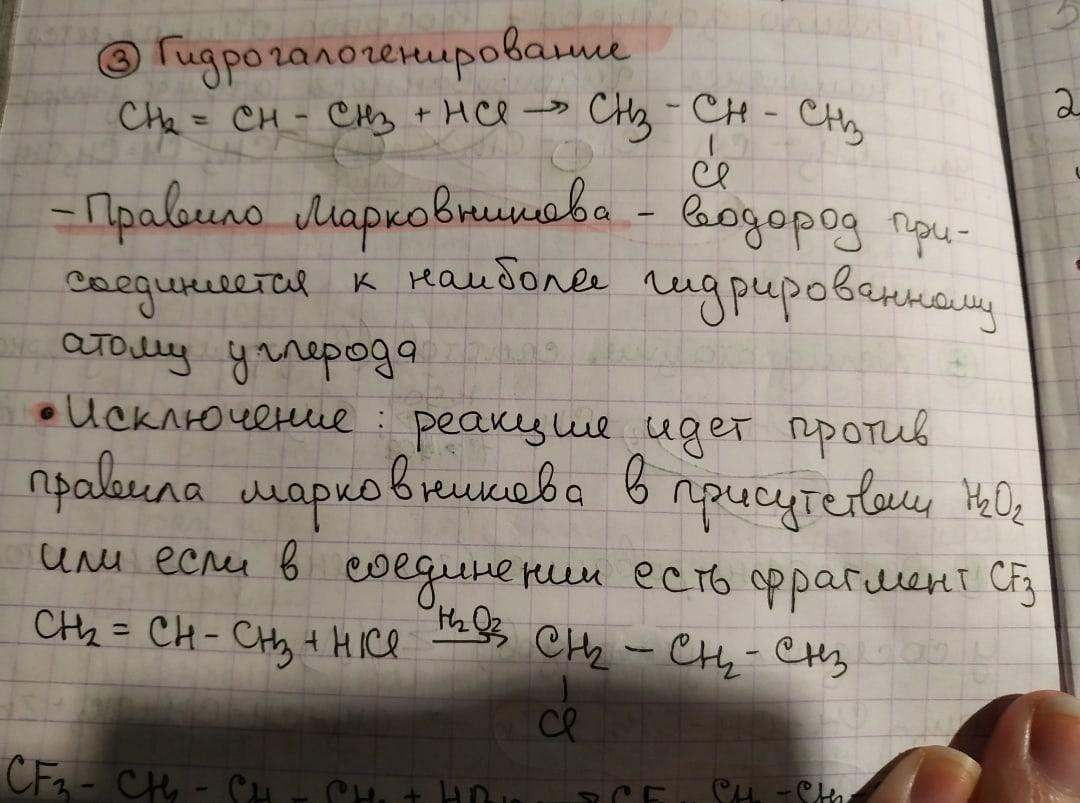 ③ Гидрогалогенирование
CH₂ = CH - CH₃ + HCl → CH₃ - CH - CH₃
Cl
- Правило Марковникова - водород при-
соединяется к наиболее гидрированному
атому углерода
• Исключение: реакция идет против
правила марковникова в присутствии H₂O₂
или если в соединении есть фрагмент CF₃
CH₂ = CH - CH₃ + HCl H₂O₂→ CH₂ - CH₂ - CH₃
Cl
CF₃ -
2